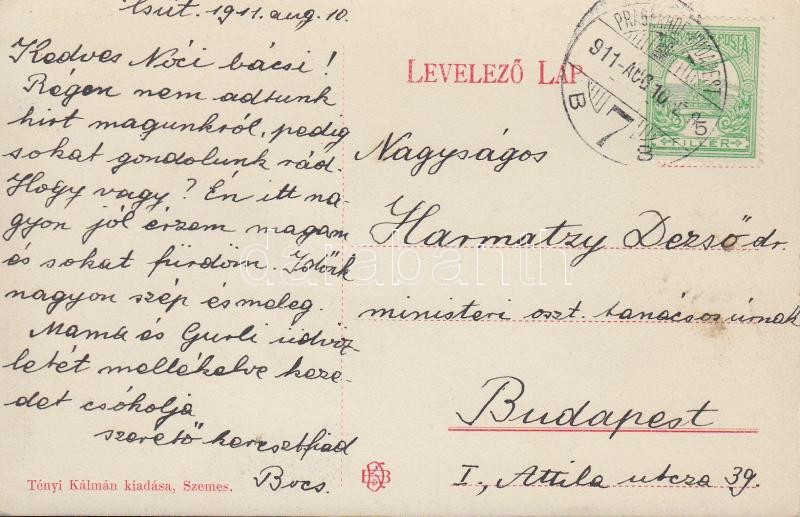 Csüt. 1911. aug. 10.
Kedves Nóci bácsi!
Régen nem adtunk
hirt magunkról, pedig
sokat gondolunk rád.
Hogy vagy? Én itt na-
gyon jól érzem magam
és sokat fürdöm. Időnk
nagyon szép és meleg.
Mama és Gurli üdvöz
letét mellékelve keze-
det csókolja
szerető keresztfiad
Bocs.
Tényi Kálmán kiadása, Szemes.
LEVELEZŐ LAP
PRAGERHOF-BUDAPEST
911-AUG 10
7
B B
POSTA
5
FILLÉR
Nagyságos
Harmatzy Dezső dr.
ministeri oszt. tanácsos úrnak
Budapest
I., Attila utcza 39.
darabanth